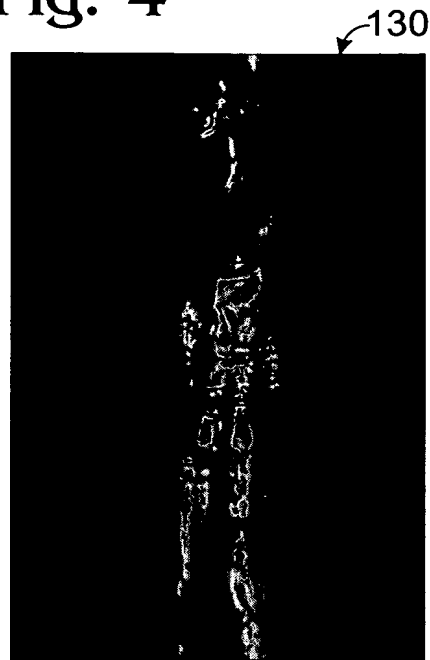 Fig. 4
130